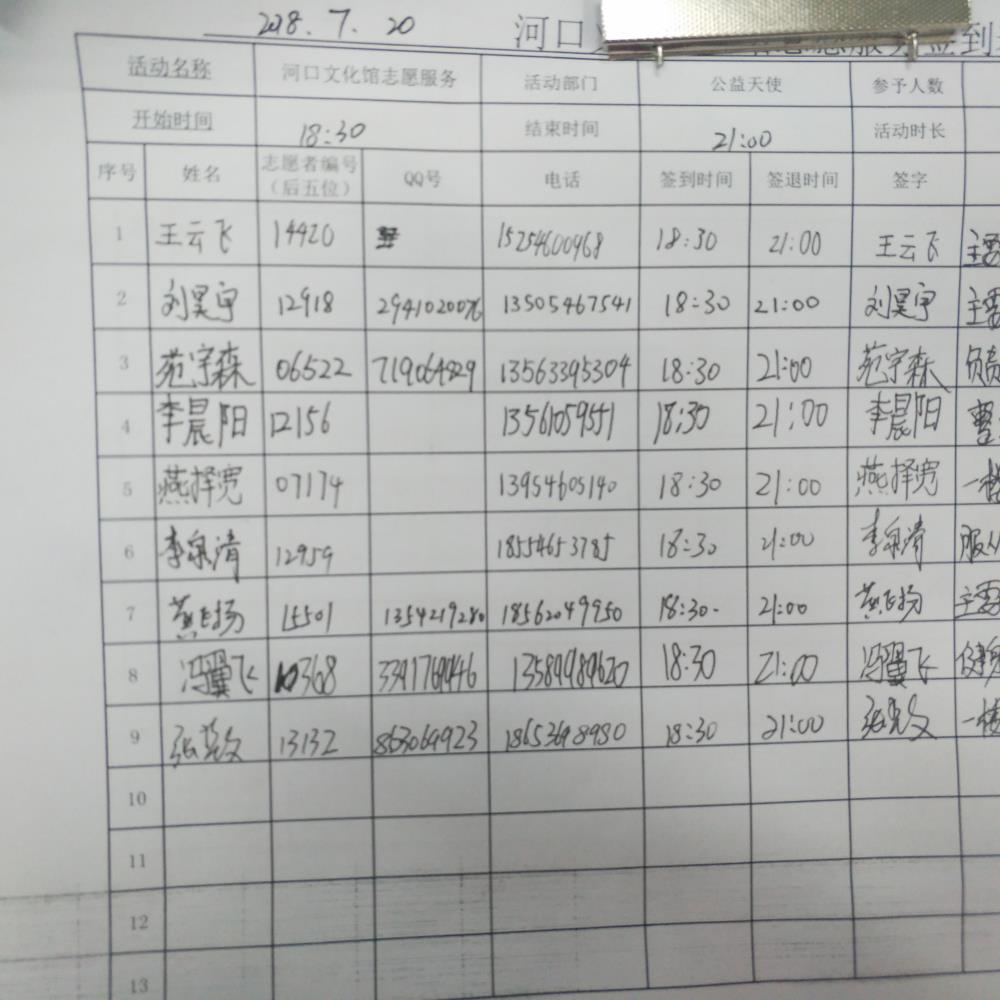 2018.7.20 河口
活动名称 河口文化馆志愿服务 活动部门 公益天使 参予人数
开始时间 18:30 结束时间 21:00 活动时长
序号 姓名 志愿者编号（后五位） QQ号 电话 签到时间 签退时间 签字
1 王云飞 14420 15254600468 18:30 21:00 王云飞
2 刘昊宇 12918 13505467541 18:30 21:00 刘昊宇
3 范宇森 06522 719064829 13563395304 18:30 21:00 范宇森
4 李晨阳 12156 18:30 21:00 李晨阳
5 燕择宽 07174 13954605140 18:30 21:00 燕择宽
6 李泉清 12959 18554653785 18:30 21:00 李泉清
7 燕飞扬 15501 1354219280 18562049950 18:30 21:00 燕飞扬
8 冯翼飞 10368 13589989620 18:30 21:00 冯翼飞
9 13132 863064923 18653698980 18:30 21:00
10
11
12
13